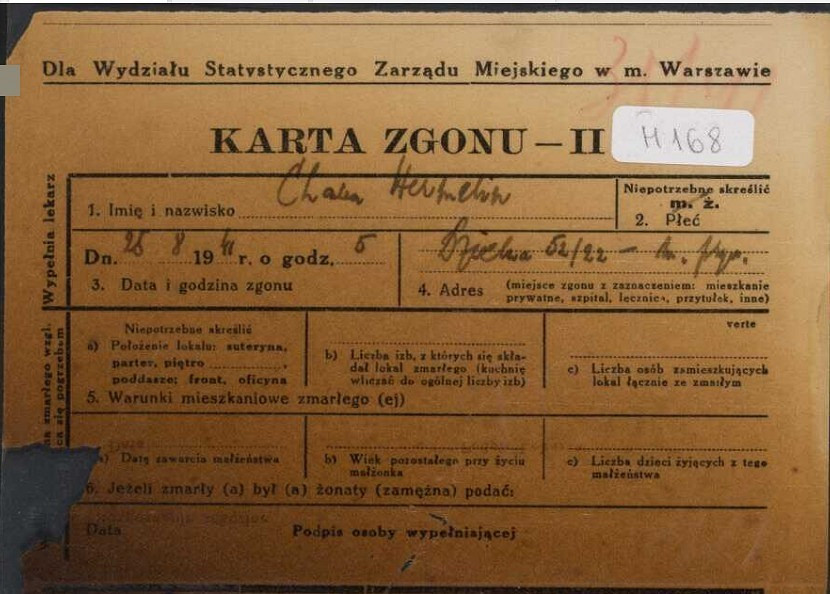 Dla Wydziału Statystycznego Zarządu Miejskiego w m. Warszawie
KARTA ZGONU — II
H 168
Wypełnia lekarz
1. Imię i nazwisko
Niepotrzebne skreślić
m. ż.
2. Płeć
Dn. 25 8 1941 r. o godz. 5
3. Data i godzina zgonu
52/22 —
4. Adres (miejsce zgonu z zaznaczeniem: mieszkanie
prywatne, szpital, lecznica, przytułek, inne)
verte
Niepotrzebne skreślić
a) Położenie lokalu: suteryna,
parter, piętro ,
poddasze; front, oficyna
b) Liczba izb, z których się skła-
dał lokal zmarłego (kuchnię
wliczać do ogólnej liczby izb)
c) Liczba osób zamieszkujących
lokal łącznie ze zmarłym
5. Warunki mieszkaniowe zmarłego (ej)
na zmarłego wzgl.
się pogrzebem
a) Datę zawarcia małżeństwa
b) Wiek pozostałego przy życiu
małżonka
c) Liczba dzieci żyjących z tego
małżeństwa
6. Jeżeli zmarły (a) był (a) żonaty (zamężna) podać:
Data
Podpis osoby wypełniającej